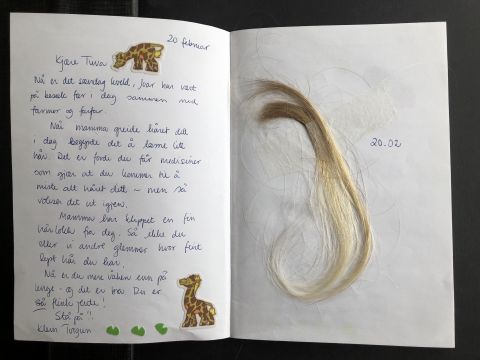 20 februar
Kjære Tuva
Nå er det søndag kveld, Ivar har vært
på besøk før i dag sammen med
farmor og farfar.
Når mamma greide håret ditt
i dag begynte det å løsne litt
hår. Det er fordi du får medisiner
som gjør at du kommer til å
miste alt håret ditt – men så
vokser det ut igjen.
Mamma har klippet en fin
hårlokk fra deg. Så ikke du
eller vi andre glemmer hvor fint
lyst hår du har.
Nå er du mere våken enn på
lenge - og det er bra. Du er
så flink jente!
Stå på!!
Klem
20.02